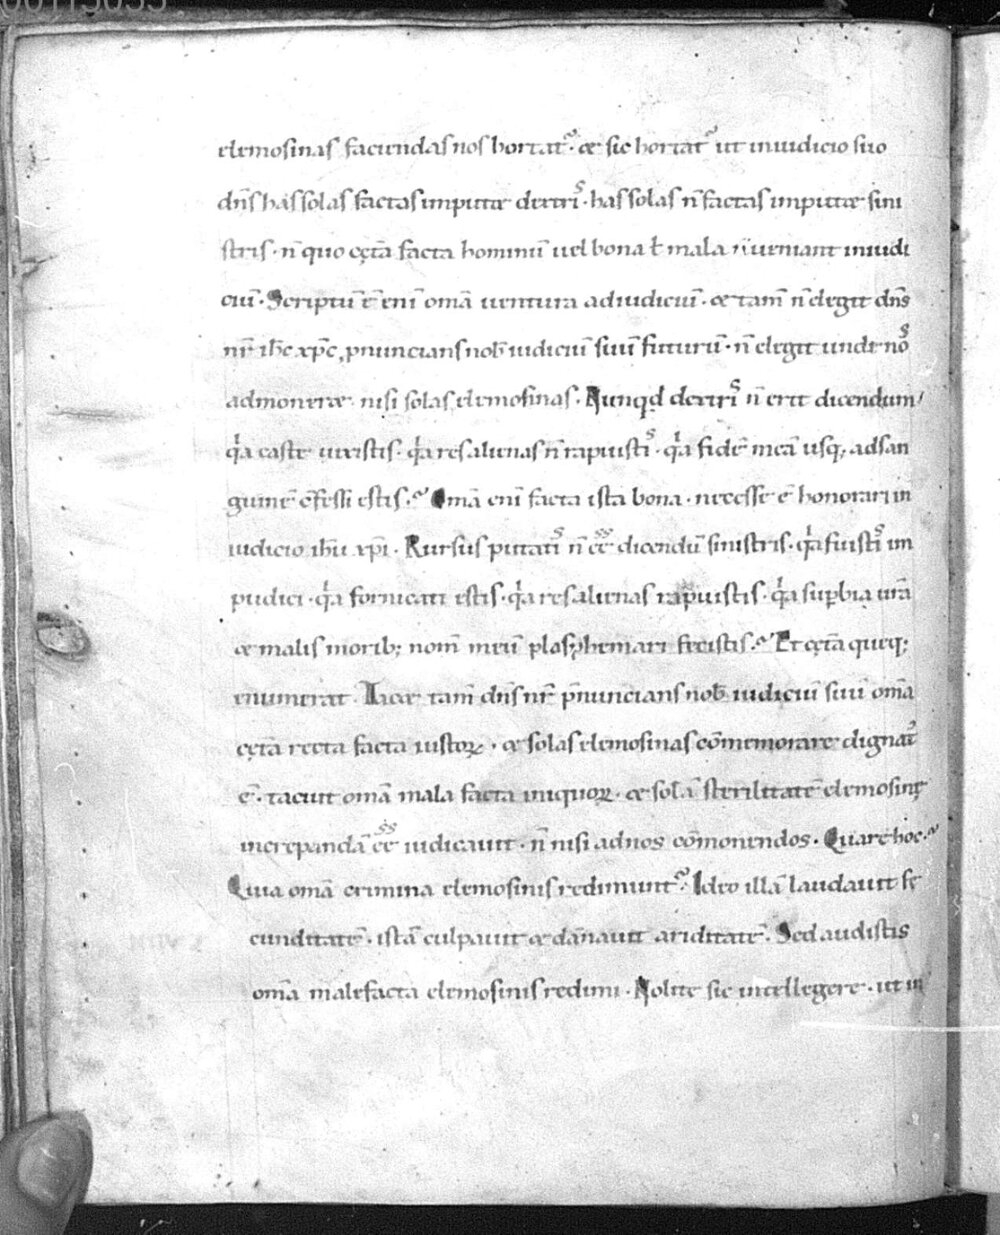 elemosinas faciendas nos hortat᷑ · & sic hortat᷑ ut iniudicio suo
dn̄s has solas factas imput& dextris · has solas n̄ factas imput& sini
stris · n̄ quo cęt̄a facta hominū uel bona ł mala n̄ ueniant iniudi
ciū · Scriptū ē enī om̄a uentura adiudiciū · & tam̄ n̄ elegit dn̄s
nr̄ ih̄c xp̄c p̄nuncians nob̄ iudiciū suū futurū · n̄ elegit unde nos
admoner& nisi solas elemosinas · Nunqd dextris n̄ erit dicendum
qa caste uixistis · qa res alienas n̄ rapuistis · qa fidē meā usq; adsan
guinē c̄fessi estis · Om̄a enī facta ista bona · necesse ē honorari in
iudicio ih̄u xp̄i · Rursus putatis n̄ ēē dicendū sinistris · qa fuistis im
pudici · qa fornicati estis · qa res alienas rapuistis · qa supbia ur̄a
& malis morib; nom̄ meū plasphemari fecistis · Et cęt̄a queq;
enumerat · Tac& tam̄ dn̄s nr̄ p̄nuncians nob̄ iudiciū suū om̄a
cęt̄a recta facta iustoꝝ · & solas elemosinas com̄emorare dignat᷑
ē · tacuit om̄a mala facta iniquoꝝ · & solā sterilitatē elemosinę
increpandā ēē iudicauit · n̄ nisi adnos com̄onendos · Quare hoc ·
Quia om̄a crimina elemosinis redimunt᷑ · Ideo illā laudauit fe
cunditatē · istā culpauit & dan̄auit ariditatē · Sed audistis
om̄a malefacta elemosinis redimi · Nolite sic intellegere · ut in